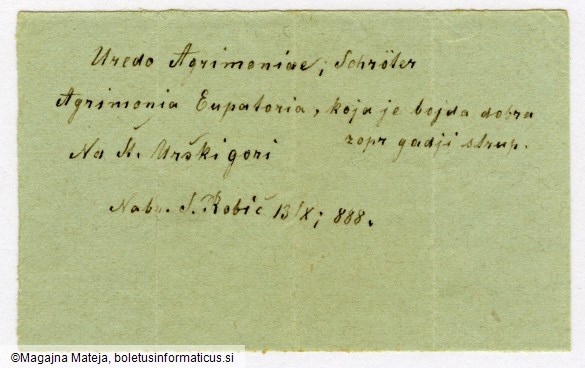 Uredo Agrimoniae; Schröter
Agrimonia Eupatoria, koja je bojda dobra
zopr gadji strup.
Na Š. Urški gori
Nabr. S. Robič 13/X; 888.
©Magajna Mateja, boletusinformaticus.si